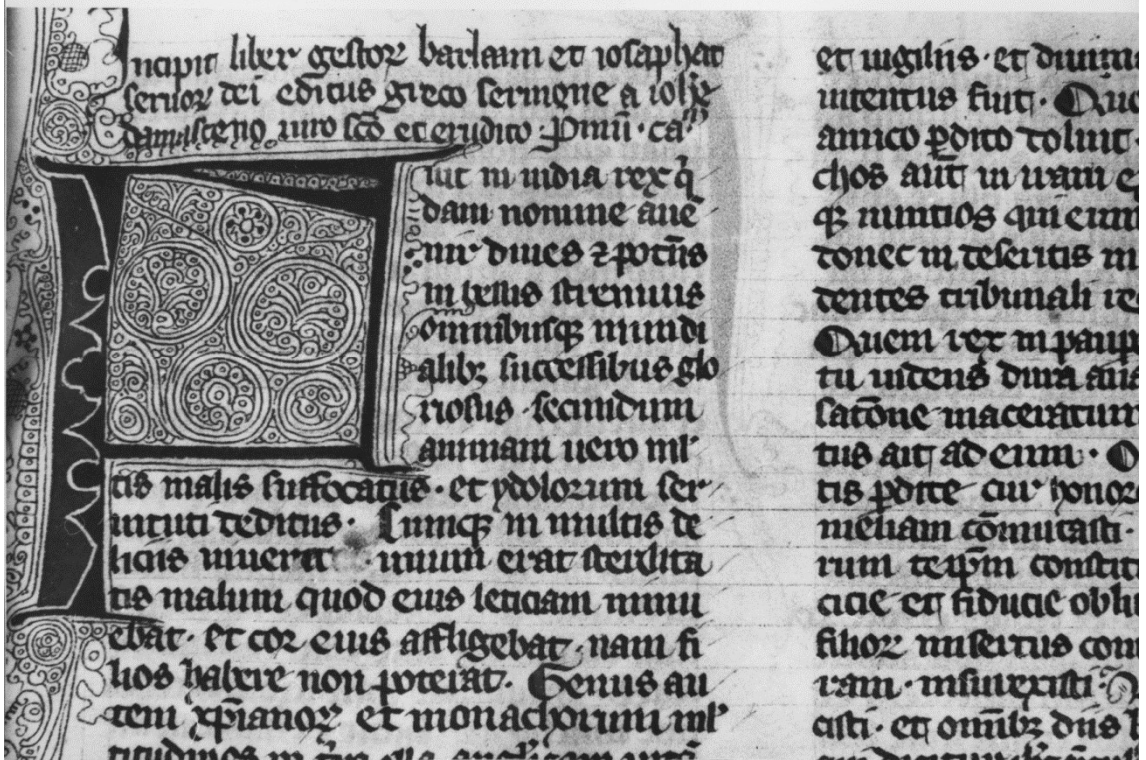 Incipit liber gestoꝝ barlaam et iosaphat
seruoꝝ dei editus greco sermone a ioh̅e
damasceno uiro sc̅o et erudito. Pmu̅. ca
Fuit in india rex q̇
dam nomine aue̅
nir diues ⁊ pote̅s
in bellis strenuus
omnibusqꝫ mundi
alibꝫ successibus glo
riosus. secundum
animam uero ml̓
tis malis suffocatus. et ydolorum ser
uituti deditus. Cumqꝫ in multis de
liciis uiueret unum erat sterilita
tis malum quod eius leticiam minu
ebat. et cor eius affligebat. nam fi
lios habere non poterat. Genus au
tem xp̅ianoꝝ et monachorum ml̓
et uigiliis. et diuini
intentus fuit. Que
amico ꝑdito doluit.
chos aut̅ in iram e
qꝫ nuntios qui eum
donec in desertis in
dentes tribunali re
Quem rex in paupe
tu uidens dura aus
sat̅one maceratum
tus ait ad eum. O
tis ꝑdite cur honor
meliam co̅mutasti.
rum teip̅m constit
citie et fiducie obli
filioꝝ misertus con
ram. insurexisti.
cisti. et omībꝫ dn̅s